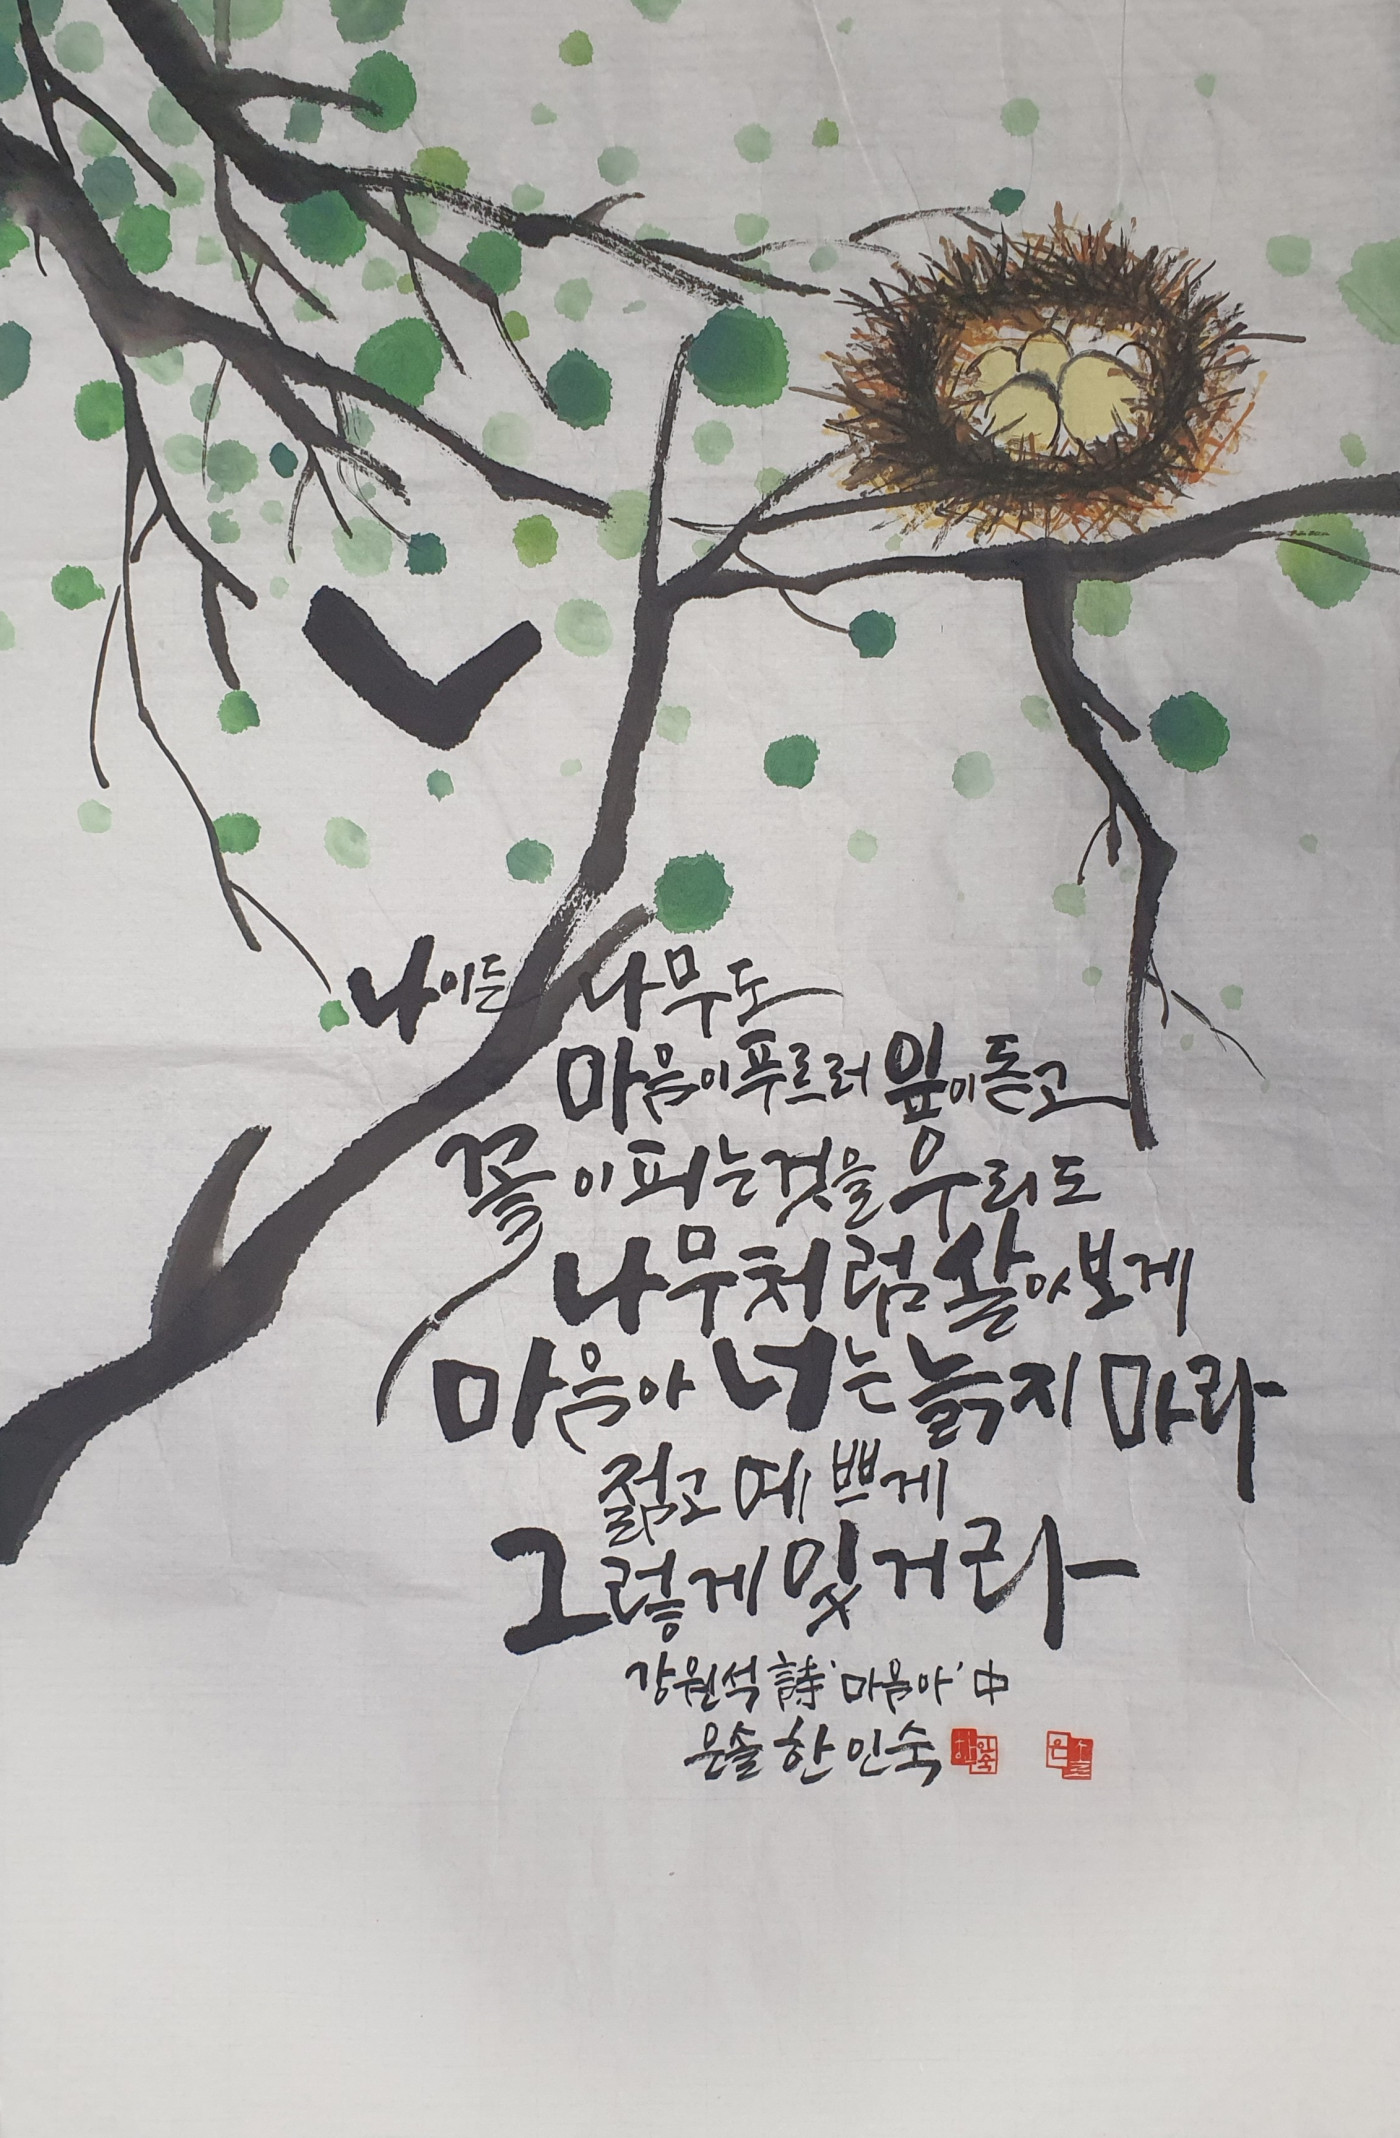 나이든 나무도
마음이 푸르러 잎이 돋고
꽃이 피는 것을 우리도
나무처럼 살아보게
마음아 너는 늙지 마라
젊고 예쁘게
그렇게 있거라
강원석 詩 '마음아' 中
은솔 한인숙
한인숙
은솔